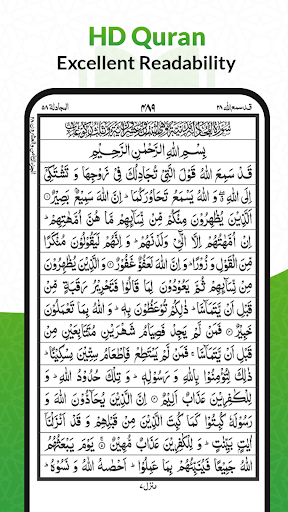 HD Quran
Excellent Readability
قد سمع الله ٢٨
٤٨٩
المجادلة ٥٨
بِسْمِ اللهِ الرَّحْمٰنِ الرَّحِيْمِ
قَدْ سَمِعَ اللهُ قَوْلَ الَّتِيْ تُجَادِلُكَ فِيْ زَوْجِهَا وَ تَشْتَكِيْٓ
اِلَى اللهِ ۖ وَ اللهُ يَسْمَعُ تَحَاوُرَكُمَا ؕ اِنَّ اللهَ سَمِيْعٌۢ بَصِيْرٌ ۝
اَلَّذِيْنَ يُظٰهِرُوْنَ مِنْكُمْ مِّنْ نِّسَآئِهِمْ مَّا هُنَّ اُمَّهٰتِهِمْ ؕ
اِنْ اُمَّهٰتُهُمْ اِلَّا الّٰٓـِٔيْ وَلَدْنَهُمْ ؕ وَ اِنَّهُمْ لَيَقُوْلُوْنَ مُنْكَرًا
مِّنَ الْقَوْلِ وَ زُوْرًا ؕ وَ اِنَّ اللهَ لَعَفُوٌّ غَفُوْرٌ ۝ وَ الَّذِيْنَ يُظٰهِرُوْنَ
مِنْ نِّسَآئِهِمْ ثُمَّ يَعُوْدُوْنَ لِمَا قَالُوْا فَتَحْرِيْرُ رَقَبَةٍ مِّنْ
قَبْلِ اَنْ يَّتَمَآسَّا ؕ ذٰلِكُمْ تُوْعَظُوْنَ بِهٖ ؕ وَ اللهُ بِمَا تَعْمَلُوْنَ
خَبِيْرٌ ۝ فَمَنْ لَّمْ يَجِدْ فَصِيَامُ شَهْرَيْنِ مُتَتَابِعَيْنِ مِنْ
قَبْلِ اَنْ يَّتَمَآسَّا ؕ فَمَنْ لَّمْ يَسْتَطِعْ فَاِطْعَامُ سِتِّيْنَ مِسْكِيْنًا ؕ
ذٰلِكَ لِتُؤْمِنُوْا بِاللهِ وَ رَسُوْلِهٖ ؕ وَ تِلْكَ حُدُوْدُ اللهِ ؕ وَ
لِلْكٰفِرِيْنَ عَذَابٌ اَلِيْمٌ ۝ اِنَّ الَّذِيْنَ يُحَآدُّوْنَ اللهَ وَ
رَسُوْلَهٗ كُبِتُوْا كَمَا كُبِتَ الَّذِيْنَ مِنْ قَبْلِهِمْ وَ قَدْ اَنْزَلْنَآ
اٰيٰتٍۭ بَيِّنٰتٍ ؕ وَ لِلْكٰفِرِيْنَ عَذَابٌ مُّهِيْنٌ ۝ يَوْمَ يَبْعَثُهُمُ
اللهُ جَمِيْعًا فَيُنَبِّئُهُمْ بِمَا عَمِلُوْا ؕ اَحْصٰىهُ اللهُ وَ نَسُوْهُ ؕ
منزل ٧